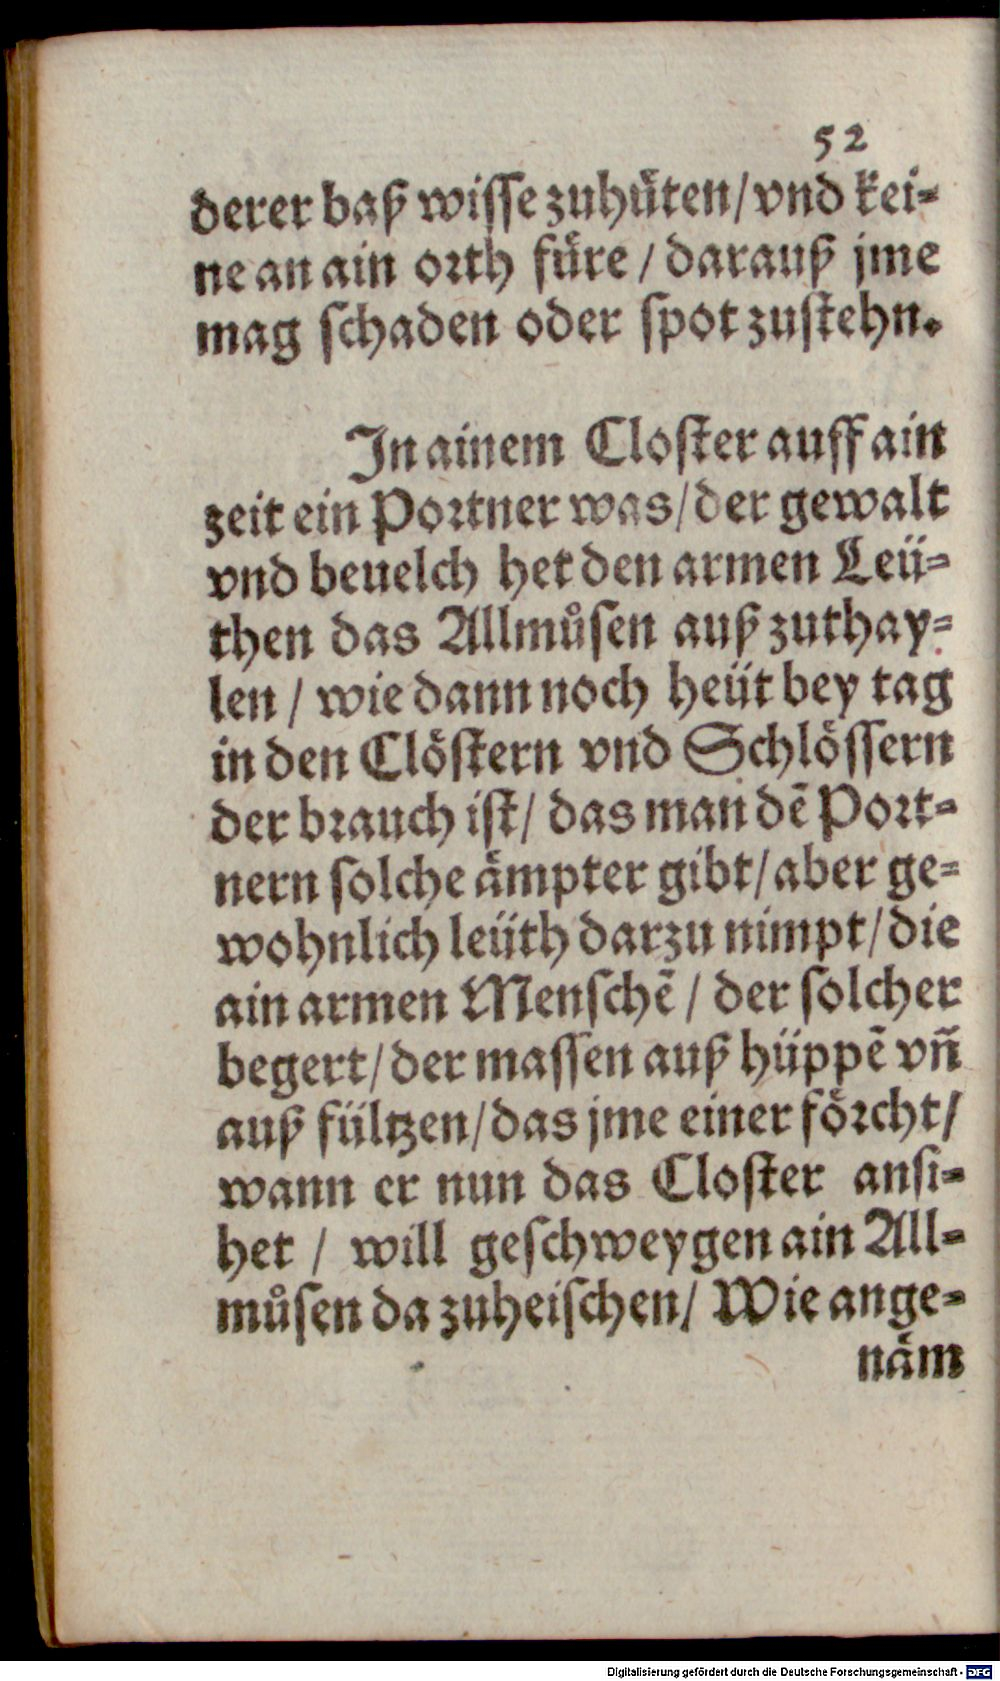 52
derer baß wisse zuhuͤten/ vnd kei⸗
ne an ain orth fuͤre / darauß jme
mag schaden oder spot zustehn.
In ainem Closter auff ain
zeit ein Portner was/ der gewalt
vnd beuelch het den armen Leü⸗
then das Allmuͦsen auß zuthay⸗
len / wie dann noch heüt bey tag
in den Cloͤstern vnd Schloͤssern
der brauch ist/ das man dē Port⸗
nern solche aͤmpter gibt/ aber ge⸗
wohnlich leüth darzu nimpt/ die
ain armen Menschē / der solcher
begert/ der massen auß hüppē vñ
auß fültzen/ das jme einer foͤrcht/
wann er nun das Closter ansi⸗
het / will geschweygen ain All⸗
muͦsen da zuheischen/ Wie ange⸗
naͤm
Digitalisierung gefördert durch die Deutsche Forschungsgemeinschaft - DFG